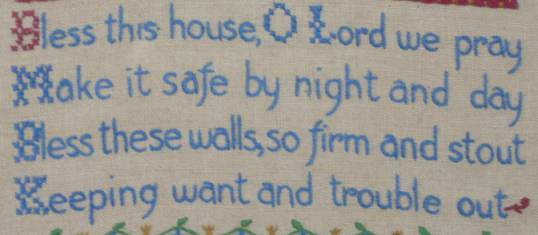 Bless this house, O Lord we pray
Make it safe by night and day
Bless these walls, so firm and stout
Keeping want and trouble out